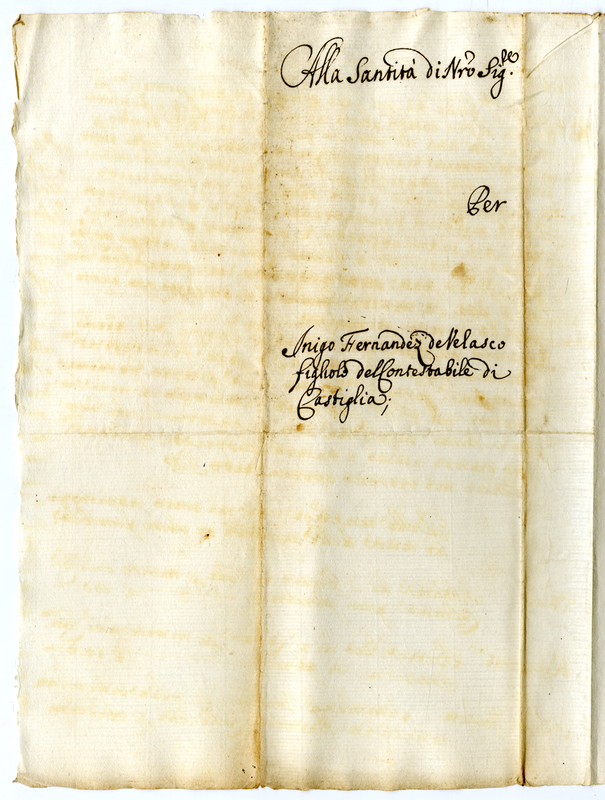 Alla Santità di Nrõ Sig.re
Per
Inigo Fernandez de Velasco
figliolo del Contestabile di
Castiglia;